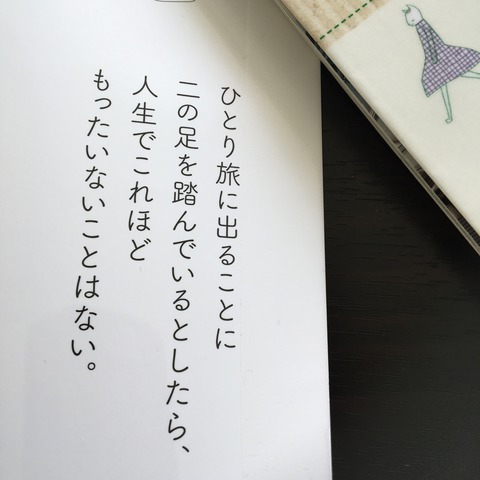 ひとり旅に出ることに
二の足を踏んでいるとしたら、
人生でこれほど
もったいないことはない。